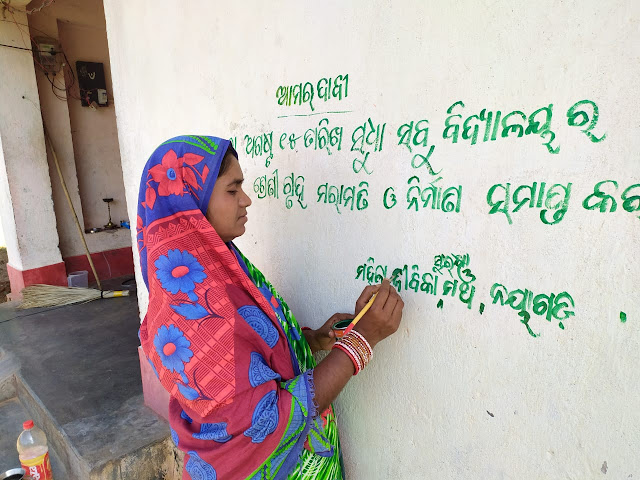 ଆମର ଦାବୀ
ଅଗଷ୍ଟ ୧୫ ତାରିଖ ସୁଧା ସବୁ ବିଦ୍ୟାଳୟ ର
ଶ୍ରେଣୀ ଗୃହ ମରାମତି ଓ ନିର୍ମାଣ ସମାପ୍ତ
ସୁରକ୍ଷା
ମହିଳା ଜୀବିକା ମଞ୍ଚ, ନୟାଗଡ଼